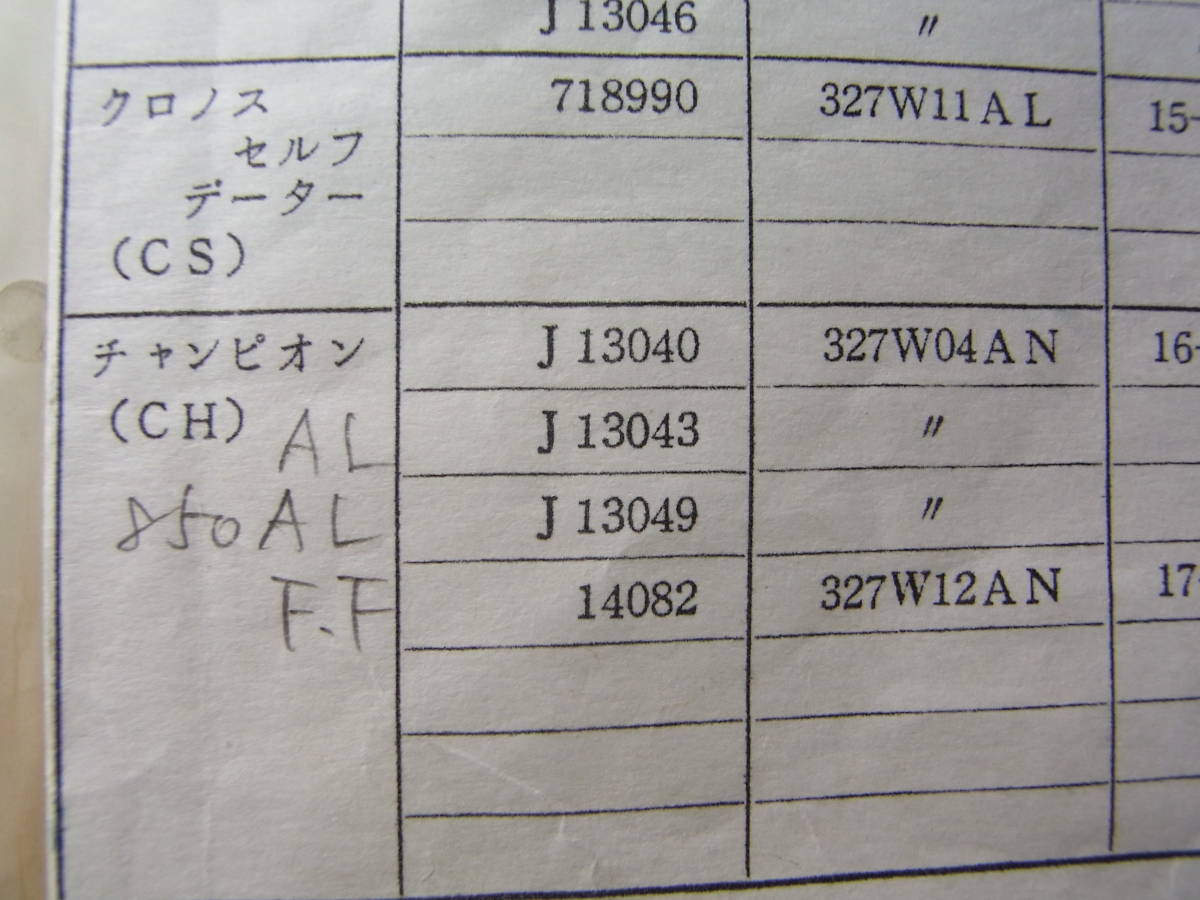 J 13046 〃
クロノス 718990 327W11AL 15-
セルフ
データー
(CS)
チャンピオン J 13040 327W04AN 16-
(CH) AL J 13043 〃
850AL J 13049 〃
F.F 14082 327W12AN 17-